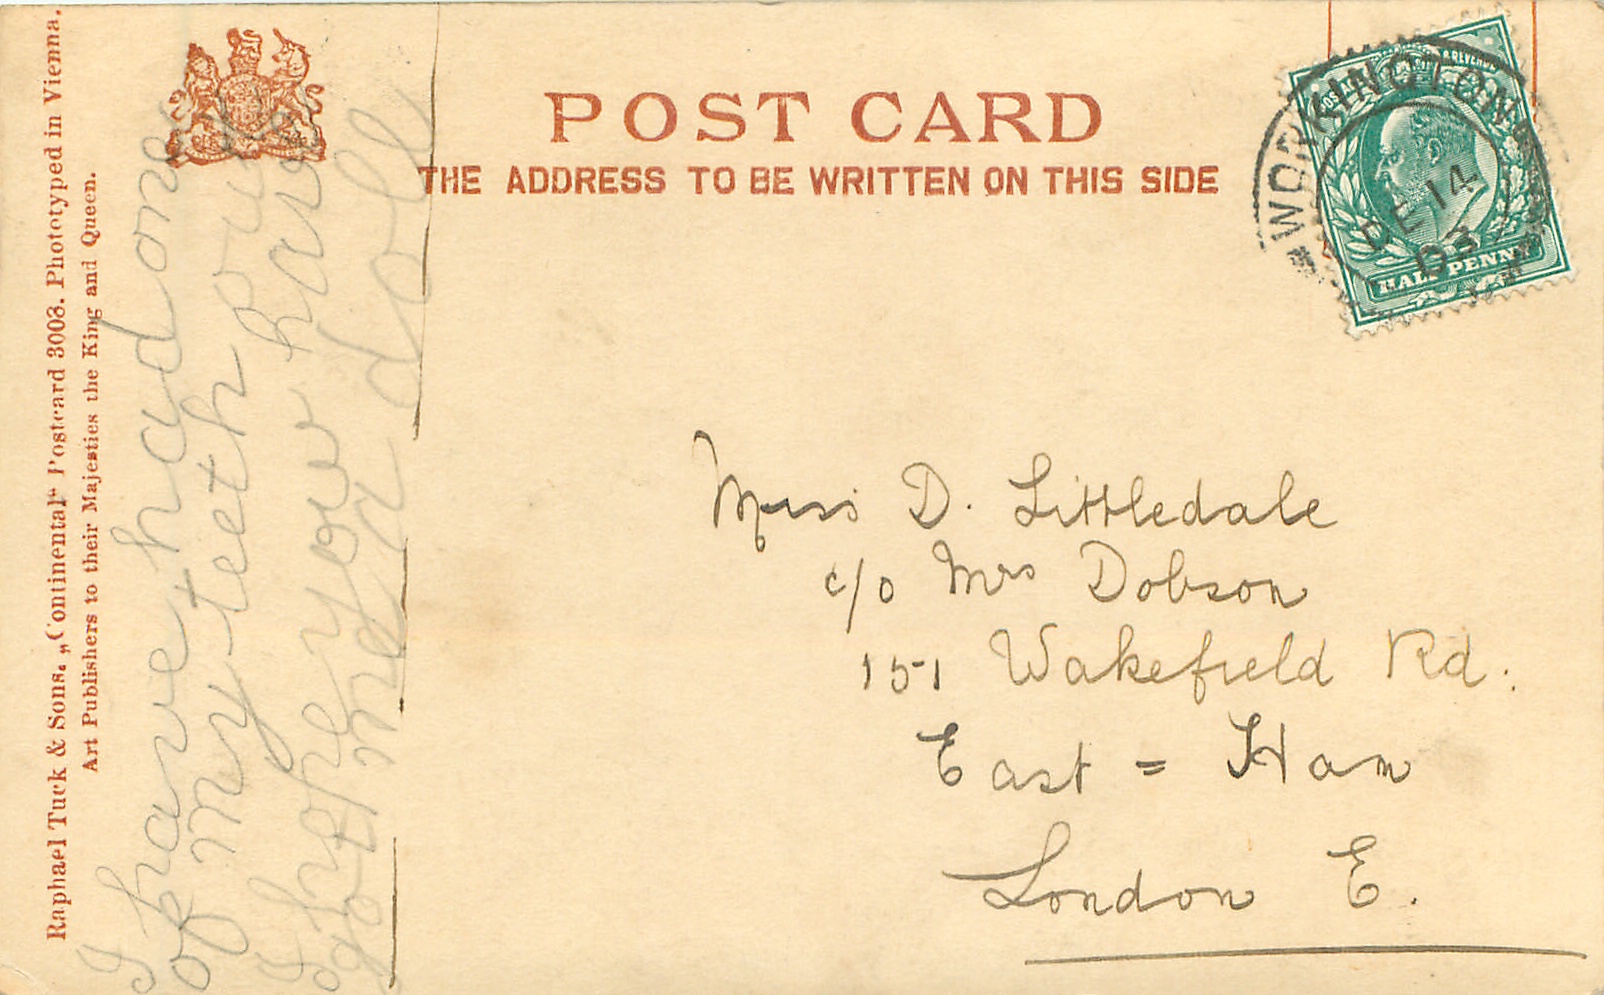 POST CARD
THE ADDRESS TO BE WRITTEN ON THIS SIDE
Raphael Tuck & Sons. „Continental“ Postcard 3003. Phototyped in Vienna.
Art Publishers to their Majesties the King and Queen.
I have had one
of my teeth out
I hope you have
got me a doll
POSTAGE & REVENUE
HALF PENNY
WORKINGTON
DE 14
03
Miss D. Littledale
c/o Mrs Dobson
151 Wakefield Rd.
East = Ham
London E.